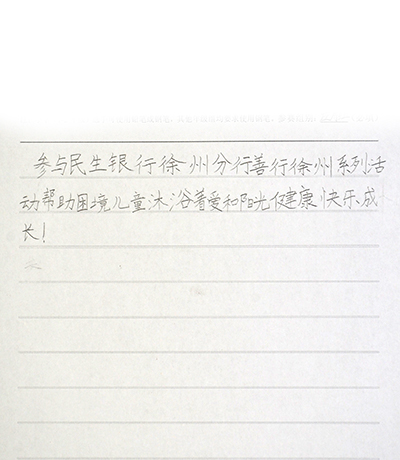 参与民生银行徐州分行善行徐州系列活
动帮助困境儿童沐浴着爱和阳光健康快乐成
长!